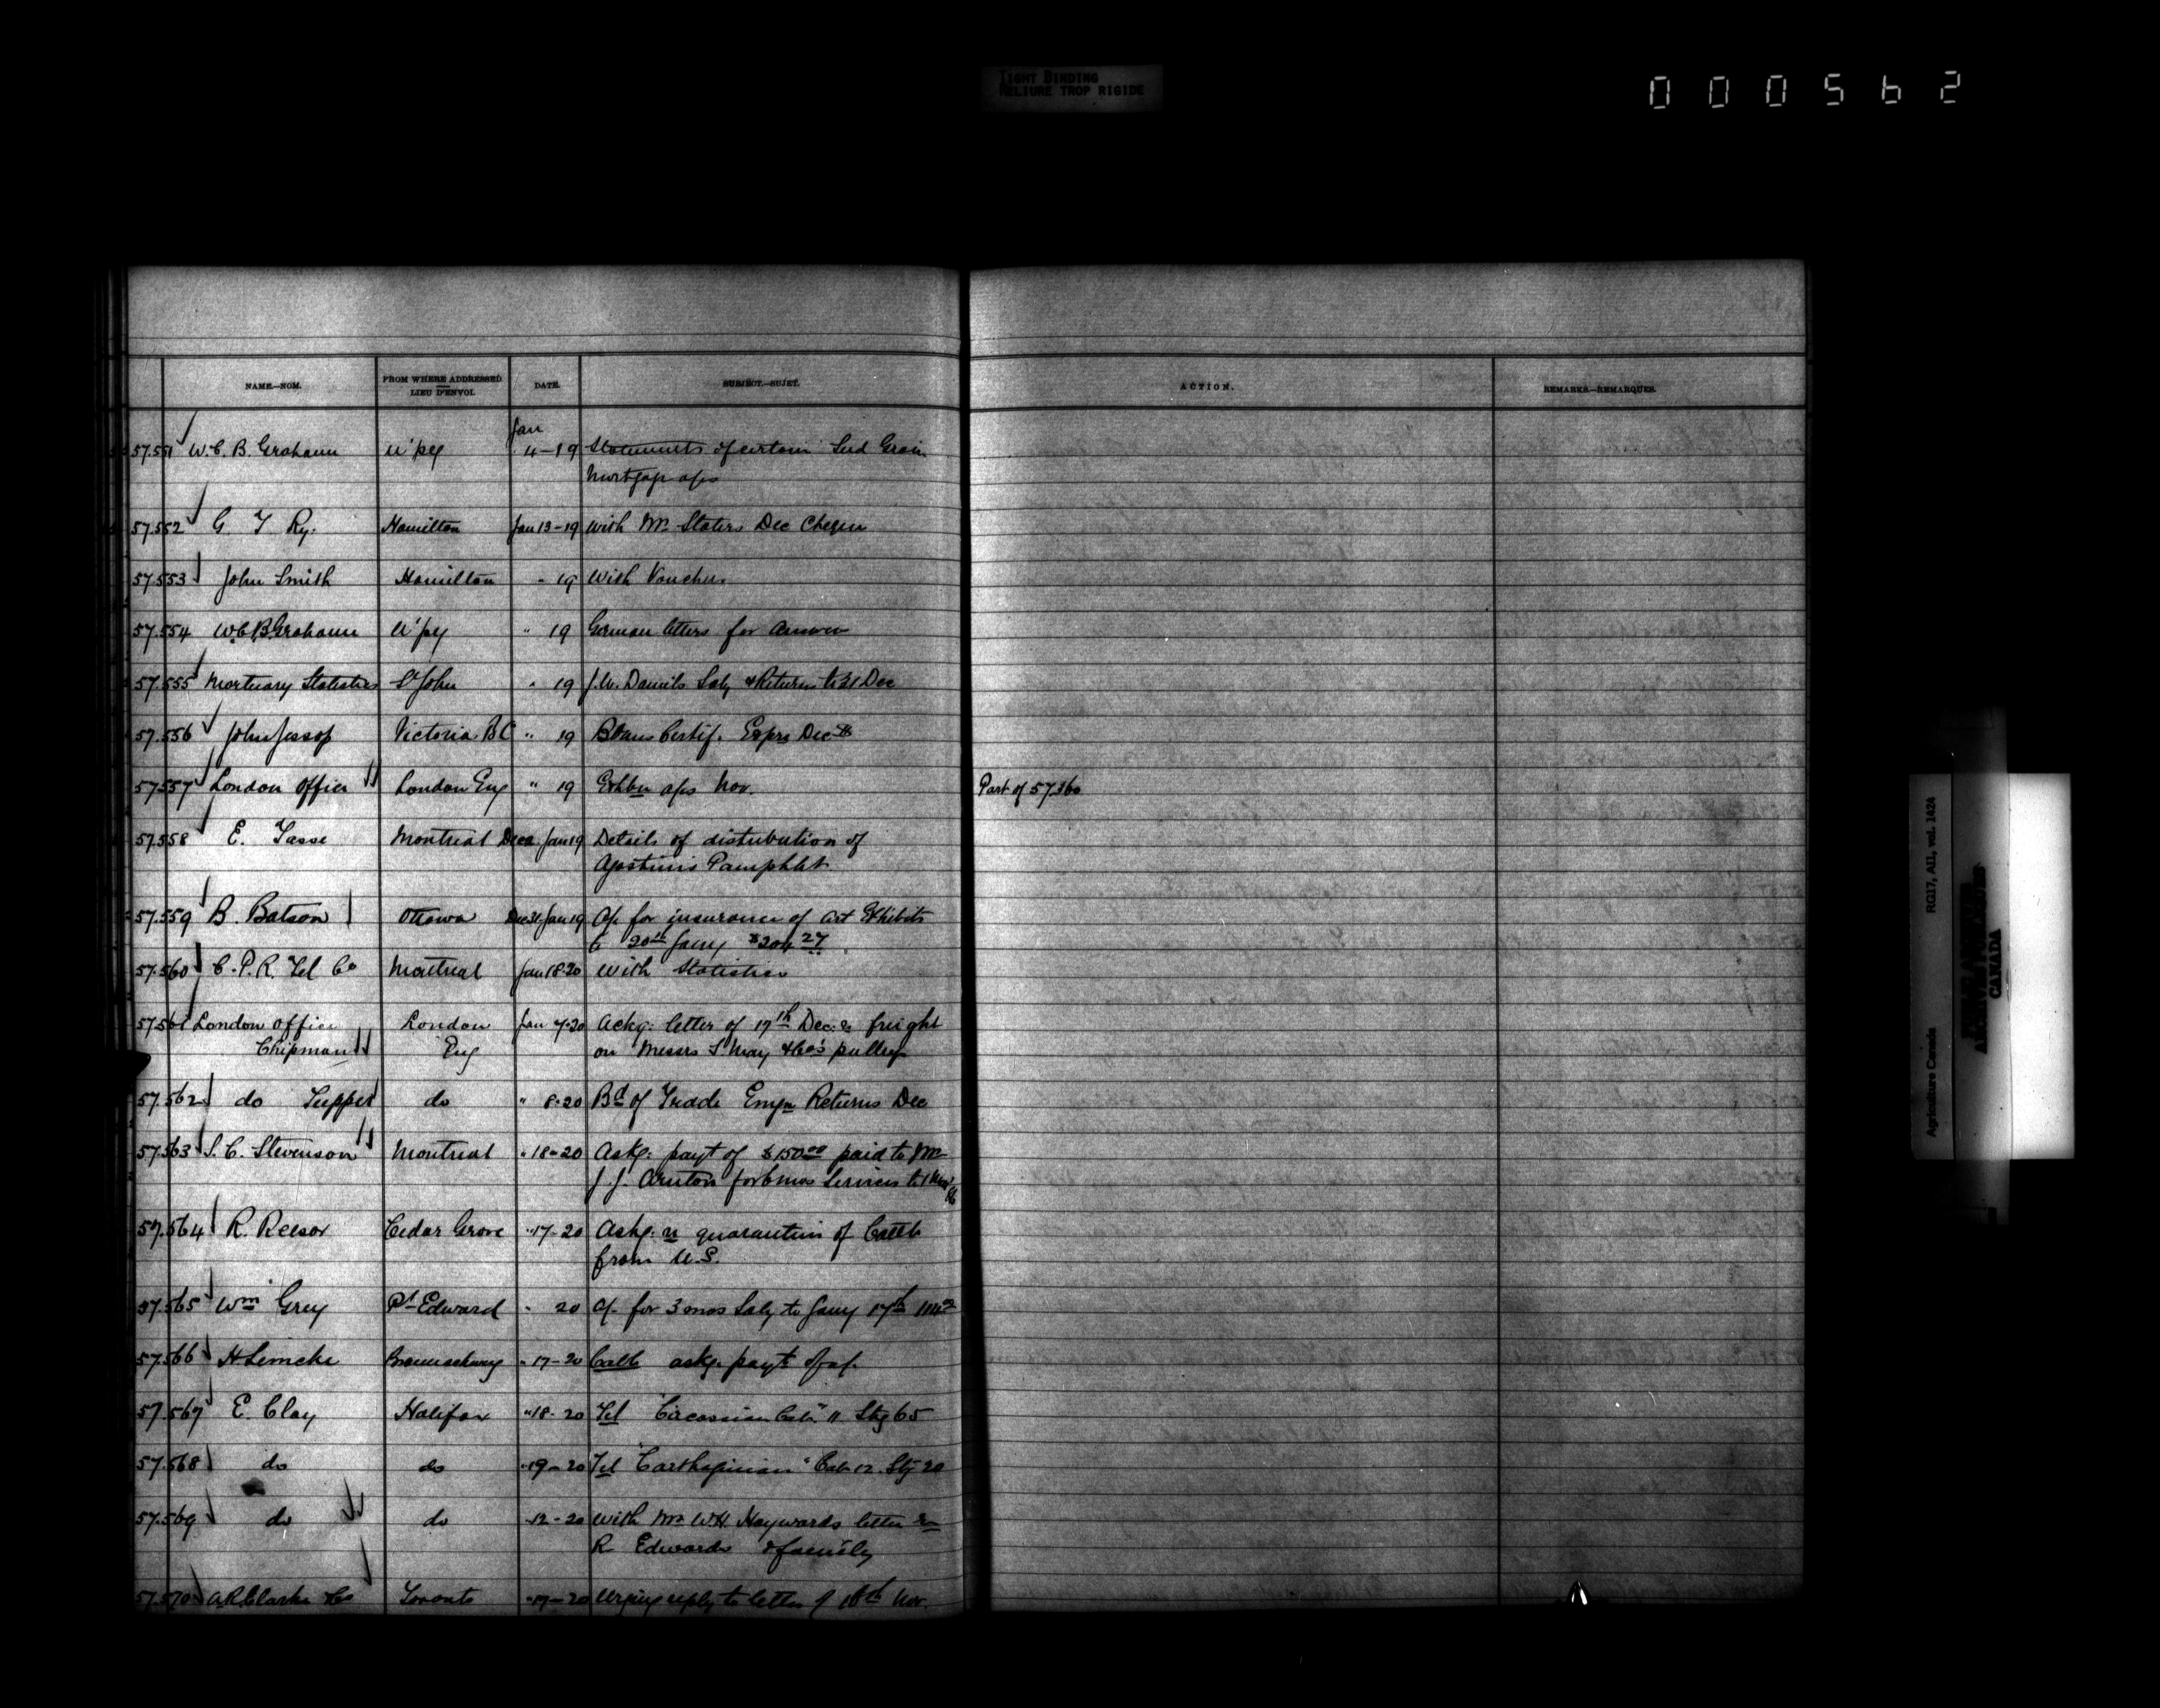 TIGHT BINDING
RELIURE TROP RIGIDE
000562
NAME.—NOM. FROM WHERE ADDRESSED LIEU D'ENVOI. DATE. SUBJECT.—SUJET. ACTION. REMARKS.—REMARQUES.
57.551 W. C. B. Grahame W'peg Jan 4-19 Statements of certain Seed Grain
Mortgage a/cs
57.552 G. T. Ry. Hamilton Jan 13-19 With Mr. Staters Dec Cheque
57.553 John Smith Hamilton " 19 With Vouchers
57.554 W.C.B. Grahame W'peg " 19 German letters for answer
57.555 Mortuary Statistics St John " 19 J.W. Daniels Saly & Returns to 31 Dec
57.556 John Jessop Victoria BC " 19 Certif. Exprs Dec
57.557 London Office London Eng " 19 Exhbn a/cs Nov. Part of 57360
57.558 E. Tasse Montreal Dec 2 Jan 19 Details of distribution of
Agostinis Pamphlet
57.559 B. Batson Ottawa Dec 31-Jan 19 A/c for insurance of Art Exhibits
to 20th Jany $204 27
57.560 C. P. R. Tel Co Montreal Jan 18-20 With Statistics
57.561 London Office London Jan 7-20 Ackg: letter of 17th Dec: re freight
Chipman Eng on Messrs S. May & Co's pulleys
57.562 do Tupper do " 8-20 Bd of Trade Emgn Returns Dec
57.563 S. C. Stevenson Montreal " 18-20 Askg: payt of $150 00 paid to Mr
J. J. Arnton for 6 mos Services to 1
57.564 R. Reesor Cedar Grove " 17-20 Askg: re quarantine of Cattle
from U.S.
57.565 Wm Grey Pt Edward " 20 A/c for 3 mos Saly to Jany 17th
57.566 H Lemcke Braunschweig " 17-20 Cattle askg. payt of a/c.
57.567 E. Clay Halifax " 18-20 Tel "Circassian Cab." 11 Stg 65
57.568 do do " 19-20 Tel "Carthaginian" Cab 12. Stg 20
57.569 do do " 12-20 With Mr W.H. Haywards letter re
R Edwards & family
57.570 A.R. Clarke & Co Toronto " 17-20 Urging reply to letter of 16th Nov.
Agriculture Canada RG17, AII, vol. 1424
CANADA